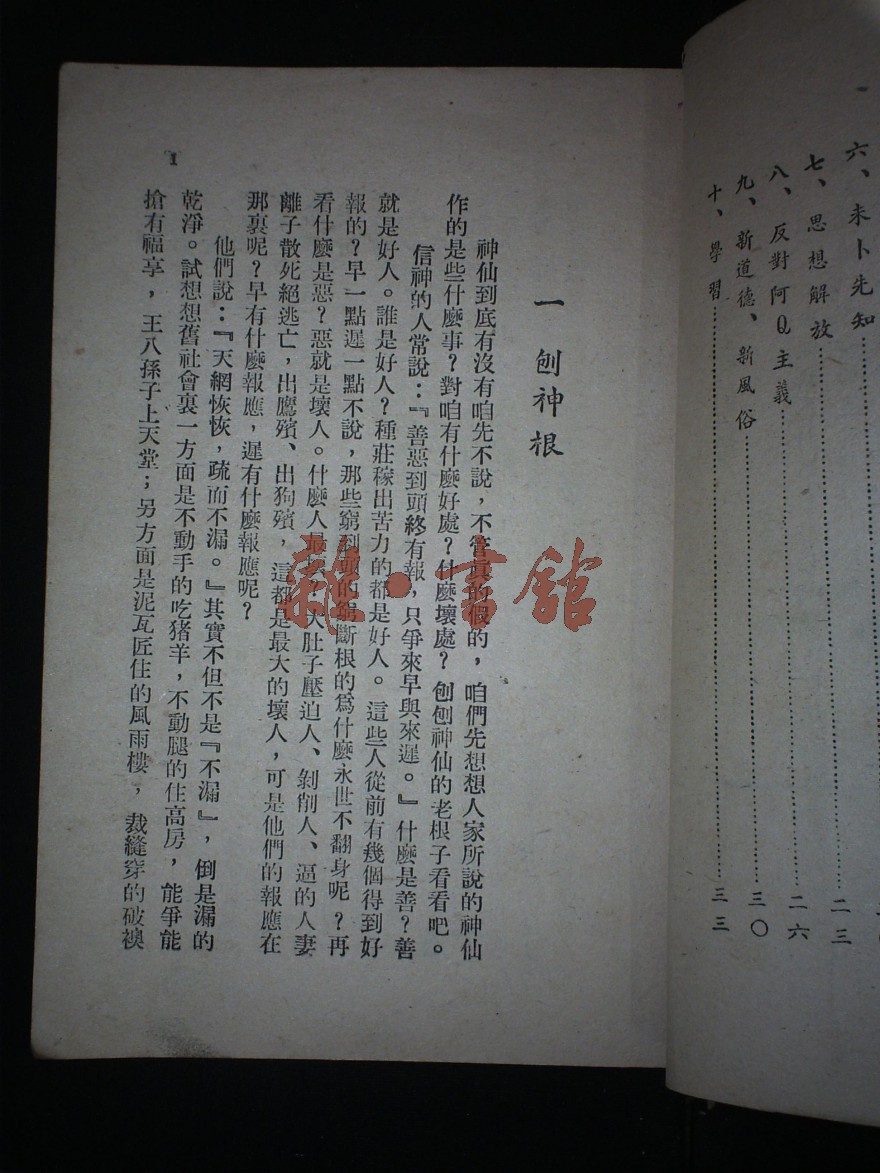 六、未卜先知
七、思想解放……二三
八、反對阿Q主義……二六
九、新道德、新風俗……三〇
十、學習……三三
一 刨神根
神仙到底有沒有咱先不說，不管真的假的，咱們先想想人家所說的神仙
作的是些什麼事？對咱有什麼好處？什麼壞處？刨刨神仙的老根子看看吧。
信神的人常說：『善惡到頭終有報，只爭來早與來遲。』什麼是善？善
就是好人。誰是好人？種莊稼出苦力的都是好人。這些人從前有幾個得到好
報的？早一點遲一點不說，那些窮到頭的窮斷根的爲什麼永世不翻身呢？再
看什麼是惡？惡就是壞人。什麼人最壞？大肚子壓迫人、剝削人、逼的人妻
離子散死絕逃亡，出鷹殯、出狗殯，這都是最大的壞人，可是他們的報應在
那裏呢？早有什麼報應，遲有什麼報應呢？
他們說：『天網恢恢，疏而不漏。』其實不但不是『不漏』，倒是漏的
乾淨。試想想舊社會裏一方面是不動手的吃猪羊，不動腿的住高房，能爭能
搶有福享，王八孫子上天堂；另方面是泥瓦匠住的風雨樓，裁縫穿的破襖
1
雜·書館